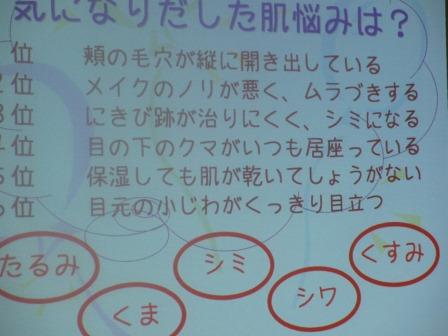 気になりだした肌悩みは？
位 頬の毛穴が縦に開き出している
2位 メイクのノリが悪く、ムラづきする
3位 にきび跡が治りにくく、シミになる
4位 目の下のクマがいつも居座っている
5位 保湿しても肌が乾いてしょうがない
6位 目元の小じわがくっきり目立つ
たるみ
くま
シミ
シワ
くすみ